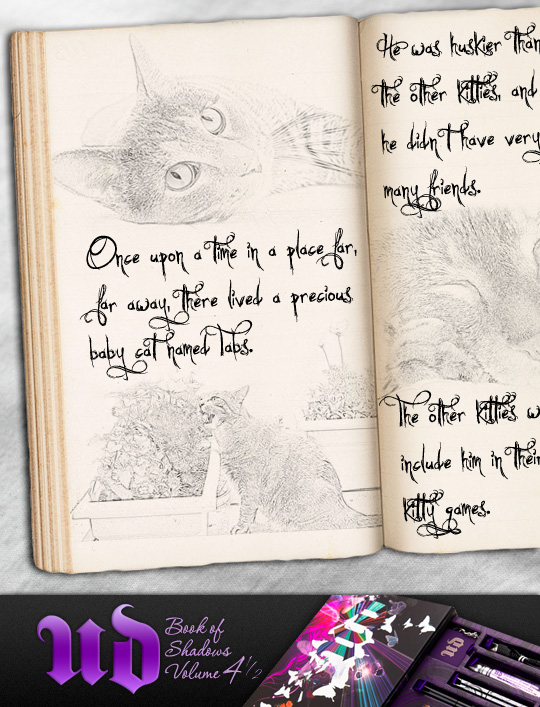 Once upon a time in a place far,
far away, there lived a precious
baby cat named Tabs.
He was huskier than
the other kitties, and
he didn't have very
many friends.
The other kitties w
include him in their
kitty games.
UD
Book of
Shadows
Volume 4 1/2
UD